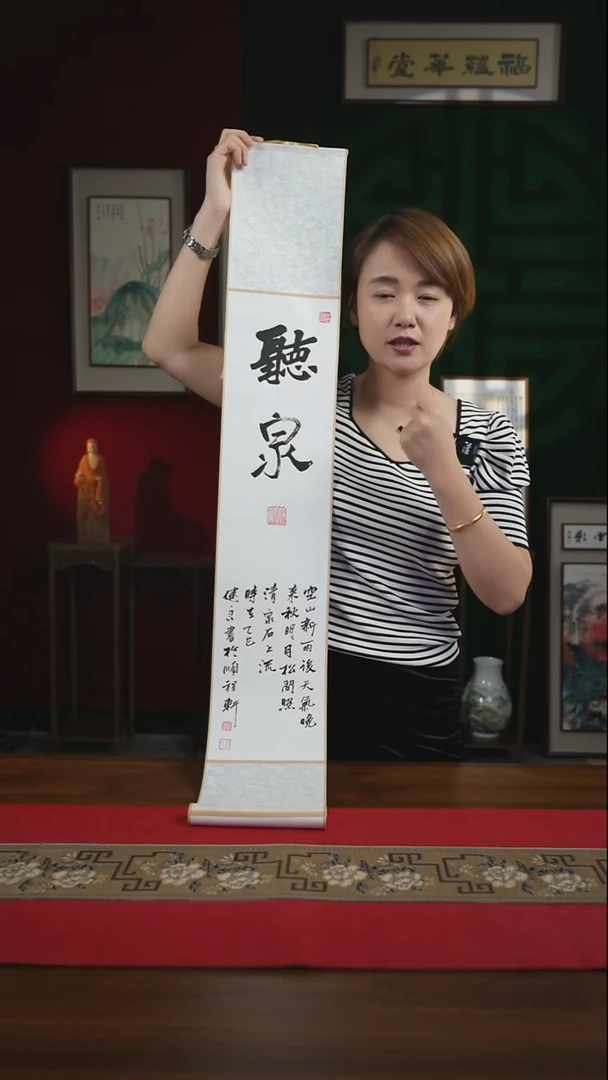 福蘊華堂
聽
泉
空山新雨後天氣晚
来秋明月松間照
清泉石上流
時在乙巳
書於順程軒